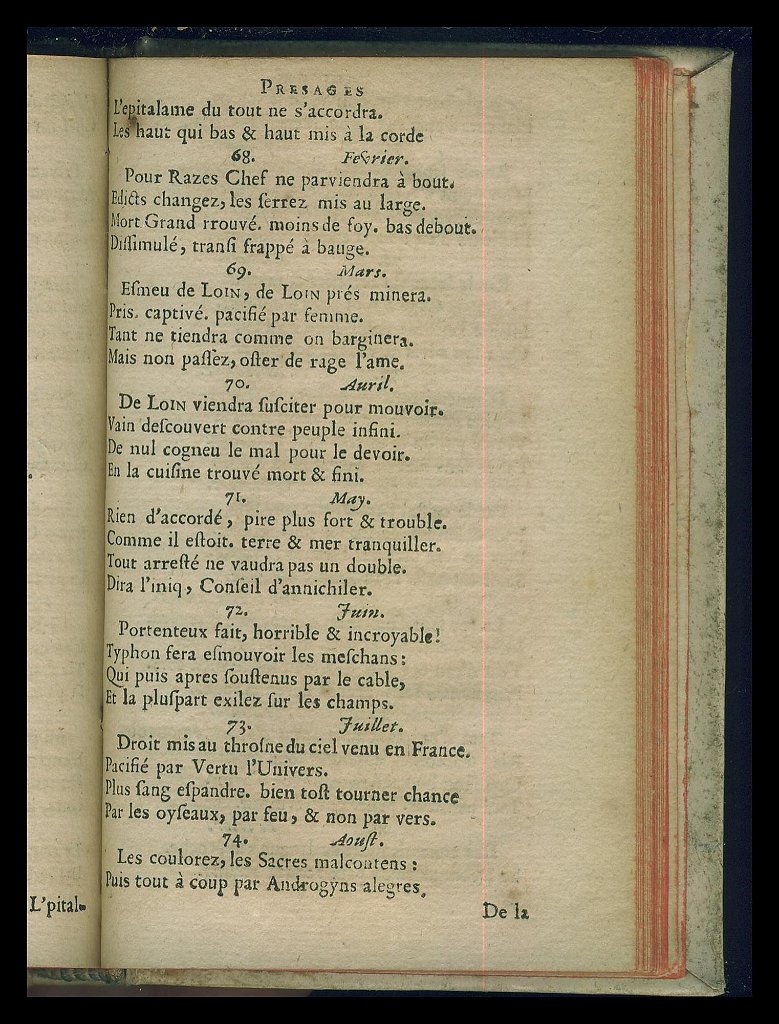 PRESAGES
L'epitalame du tout ne s'accordra.
Les haut qui bas & haut mis à la corde
68. Fevrier.
Pour Razes Chef ne parviendra à bout.
Edicts changez, les ſerrez mis au large.
Mort Grand rrouvé. moins de foy. bas debout.
Diſſimulé, tranſi frappé à bauge.
69. Mars.
Eſmeu de LOIN, de LOIN prés minera.
Pris. captivé. pacifié par femme.
Tant ne tiendra comme on barginera.
Mais non paſſez, oſter de rage l'ame.
70. Auril.
De LOIN viendra ſuſciter pour mouvoir.
Vain deſcouvert contre peuple infini.
De nul cogneu le mal pour le devoir.
En la cuiſine trouvé mort & fini.
71. May.
Rien d'accordé, pire plus fort & trouble.
Comme il eſtoit. terre & mer tranquiller.
Tout arreſté ne vaudra pas un double.
Dira l'iniq, Conſeil d'annichiler.
72. Juin.
Portenteux fait, horrible & incroyable!
Typhon fera eſmouvoir les meſchans:
Qui puis apres ſouſtenus par le cable,
Et la pluſpart exilez ſur les champs.
73. Juillet.
Droit mis au throſne du ciel venu en France.
Pacifié par Vertu l'Univers.
Plus ſang eſpandre. bien toſt tourner chance
Par les oyſeaux, par feu, & non par vers.
74. Aouſt.
Les coulorez, les Sacres malcontens:
Puis tout à coup par Androgyns alegres.
L'pital-
De la